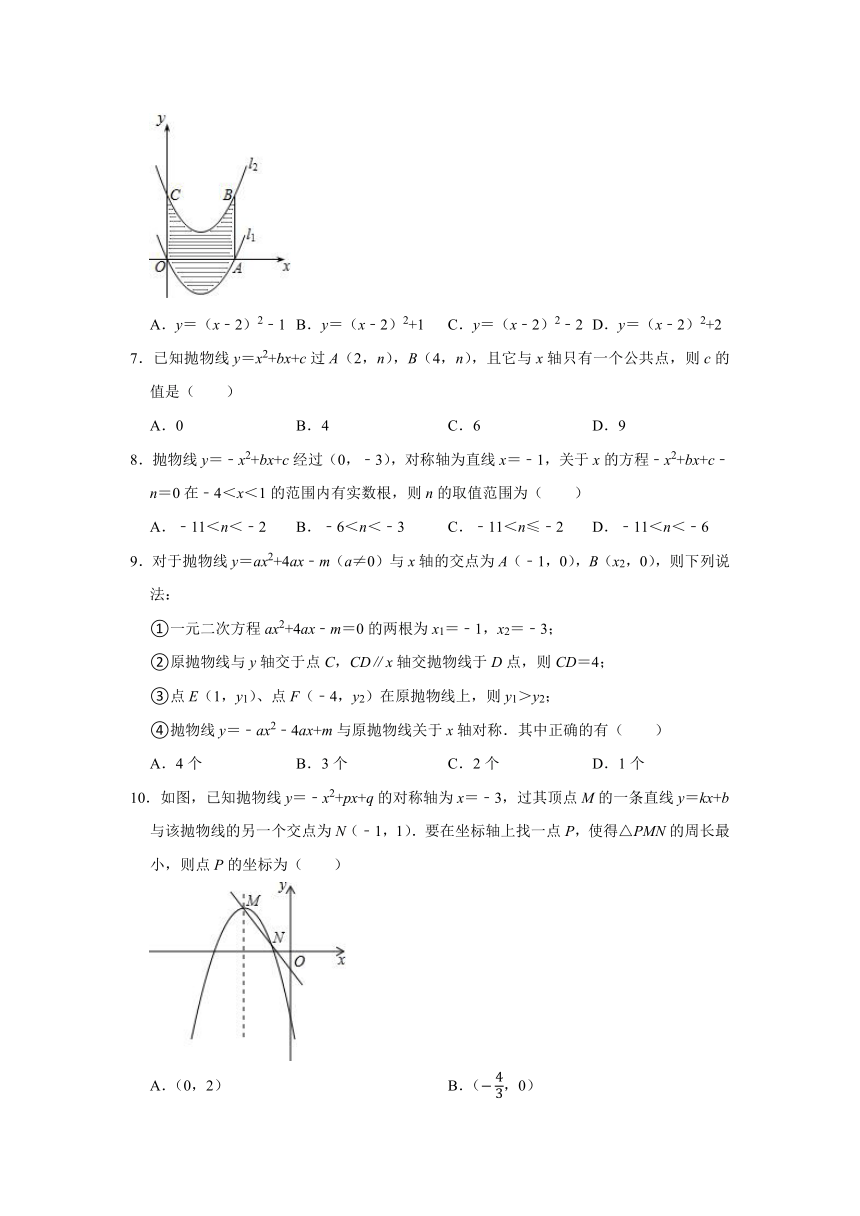 y
l2
C
B
l1
O
A
x
A．y＝（x﹣2）2﹣1 B．y＝（x﹣2）2+1 C．y＝（x﹣2）2﹣2 D．y＝（x﹣2）2+2
7．已知抛物线 y＝x2+bx+c 过 A（2，n），B（4，n），且它与 x 轴只有一个公共点，则 c 的
值是（　　）
A．0 B．4 C．6 D．9
8．抛物线 y＝﹣x2+bx+c 经过（0，﹣3），对称轴为直线 x＝﹣1，关于 x 的方程﹣x2+bx+c﹣
n＝0 在﹣4＜x＜1 的范围内有实数根，则 n 的取值范围为（　　）
A．﹣11＜n＜﹣2 B．﹣6＜n＜﹣3 C．﹣11＜n≤﹣2 D．﹣11＜n＜﹣6
9．对于抛物线 y＝ax2+4ax﹣m（a≠0）与 x 轴的交点为 A（﹣1，0），B（x2，0），则下列说
法：
①一元二次方程 ax2+4ax﹣m＝0 的两根为 x1＝﹣1，x2＝﹣3；
②原抛物线与 y 轴交于点 C，CD∥x 轴交抛物线于 D 点，则 CD＝4；
③点 E（1，y1）、点 F（﹣4，y2）在原抛物线上，则 y1＞y2；
④抛物线 y＝﹣ax2﹣4ax+m 与原抛物线关于 x 轴对称．其中正确的有（　　）
A．4 个 B．3 个 C．2 个 D．1 个
10．如图，已知抛物线 y＝﹣x2+px+q 的对称轴为 x＝﹣3，过其顶点 M 的一条直线 y＝kx+b
与该抛物线的另一个交点为 N（﹣1，1）．要在坐标轴上找一点 P，使得△PMN 的周长最
小，则点 P 的坐标为（　　）
y
M
N
O
x
A．（0，2） B．（−4/3，0）